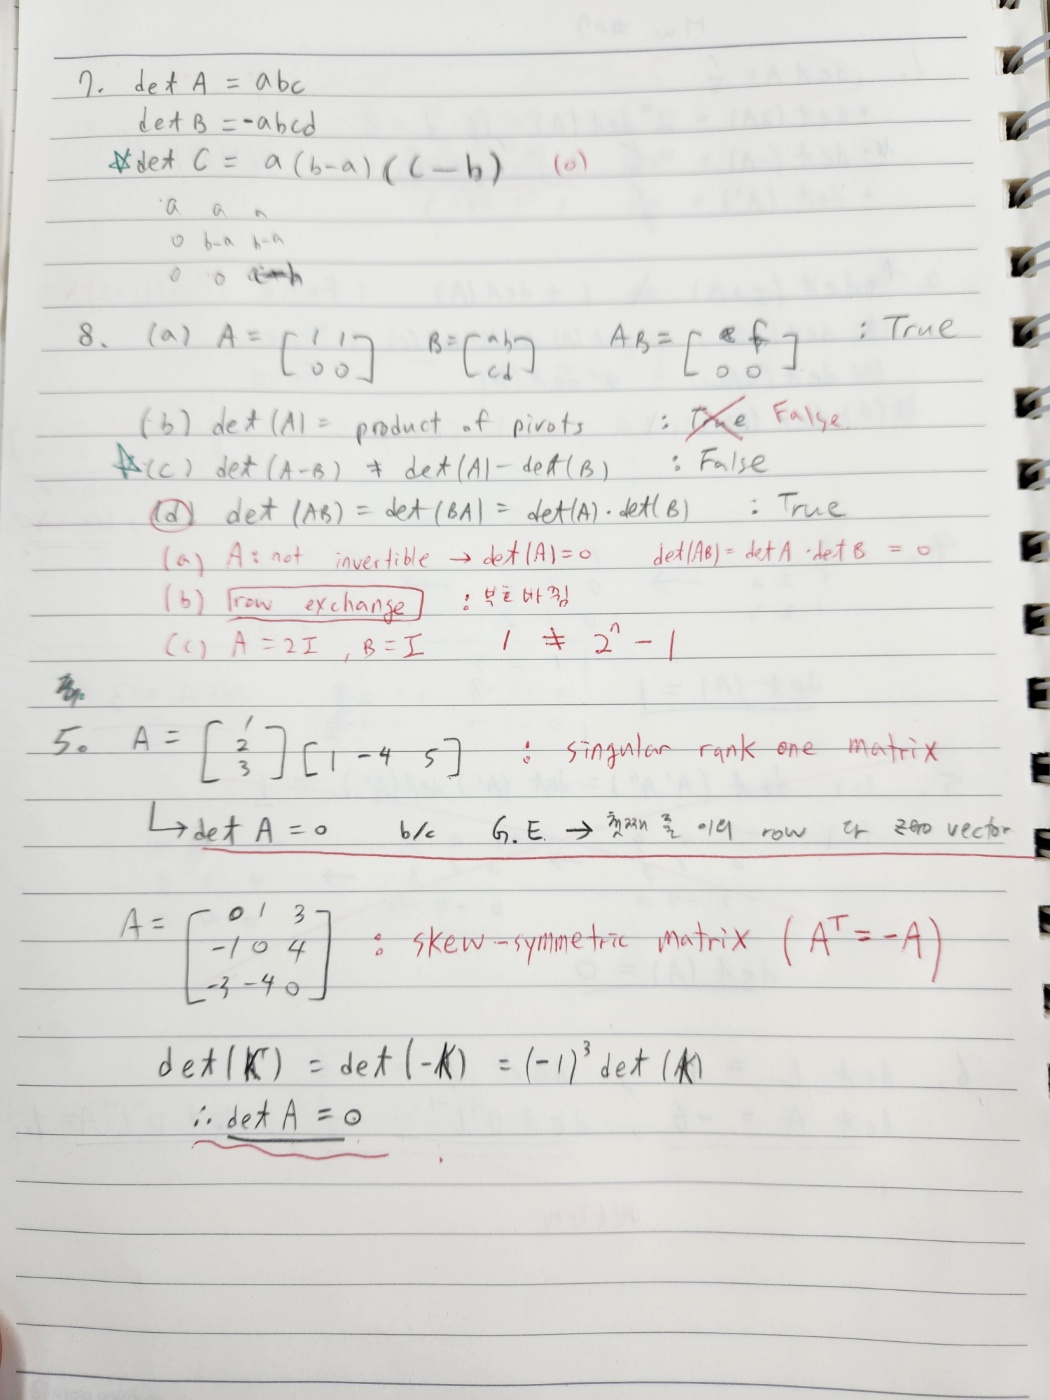 7. det A = abc
det B = -abcd
☆ det C = a(b-a)(c-b) (o)
a a a
0 b-a b-a
0 0
8. (a) A = [1 1 0 0] B = [a b c d] AB = [e f 0 0] : True
(b) det(A) = product of pivots : True False
☆(c) det(A-B) ≠ det(A) - det(B) : False
(d) det(AB) = det(BA) = det(A)·det(B) : True
(a) A: not invertible → det(A)=0 det(AB) = det A · det B = 0
(b) row exchange : 부호 바뀜
(c) A = 2I, B = I 1 ≠ 2ⁿ - 1
5. A = [1 2 3] [1 -4 5] : singular rank one matrix
↳ det A = 0 b/c G.E. → 첫째 줄 이외 row 다 zero vector
A = [0 1 3 -1 0 4 -3 -4 0] : skew-symmetric matrix (Aᵀ = -A)
det(Kᵀ) = det(-K) = (-1)³ det(K)
∴ det A = 0